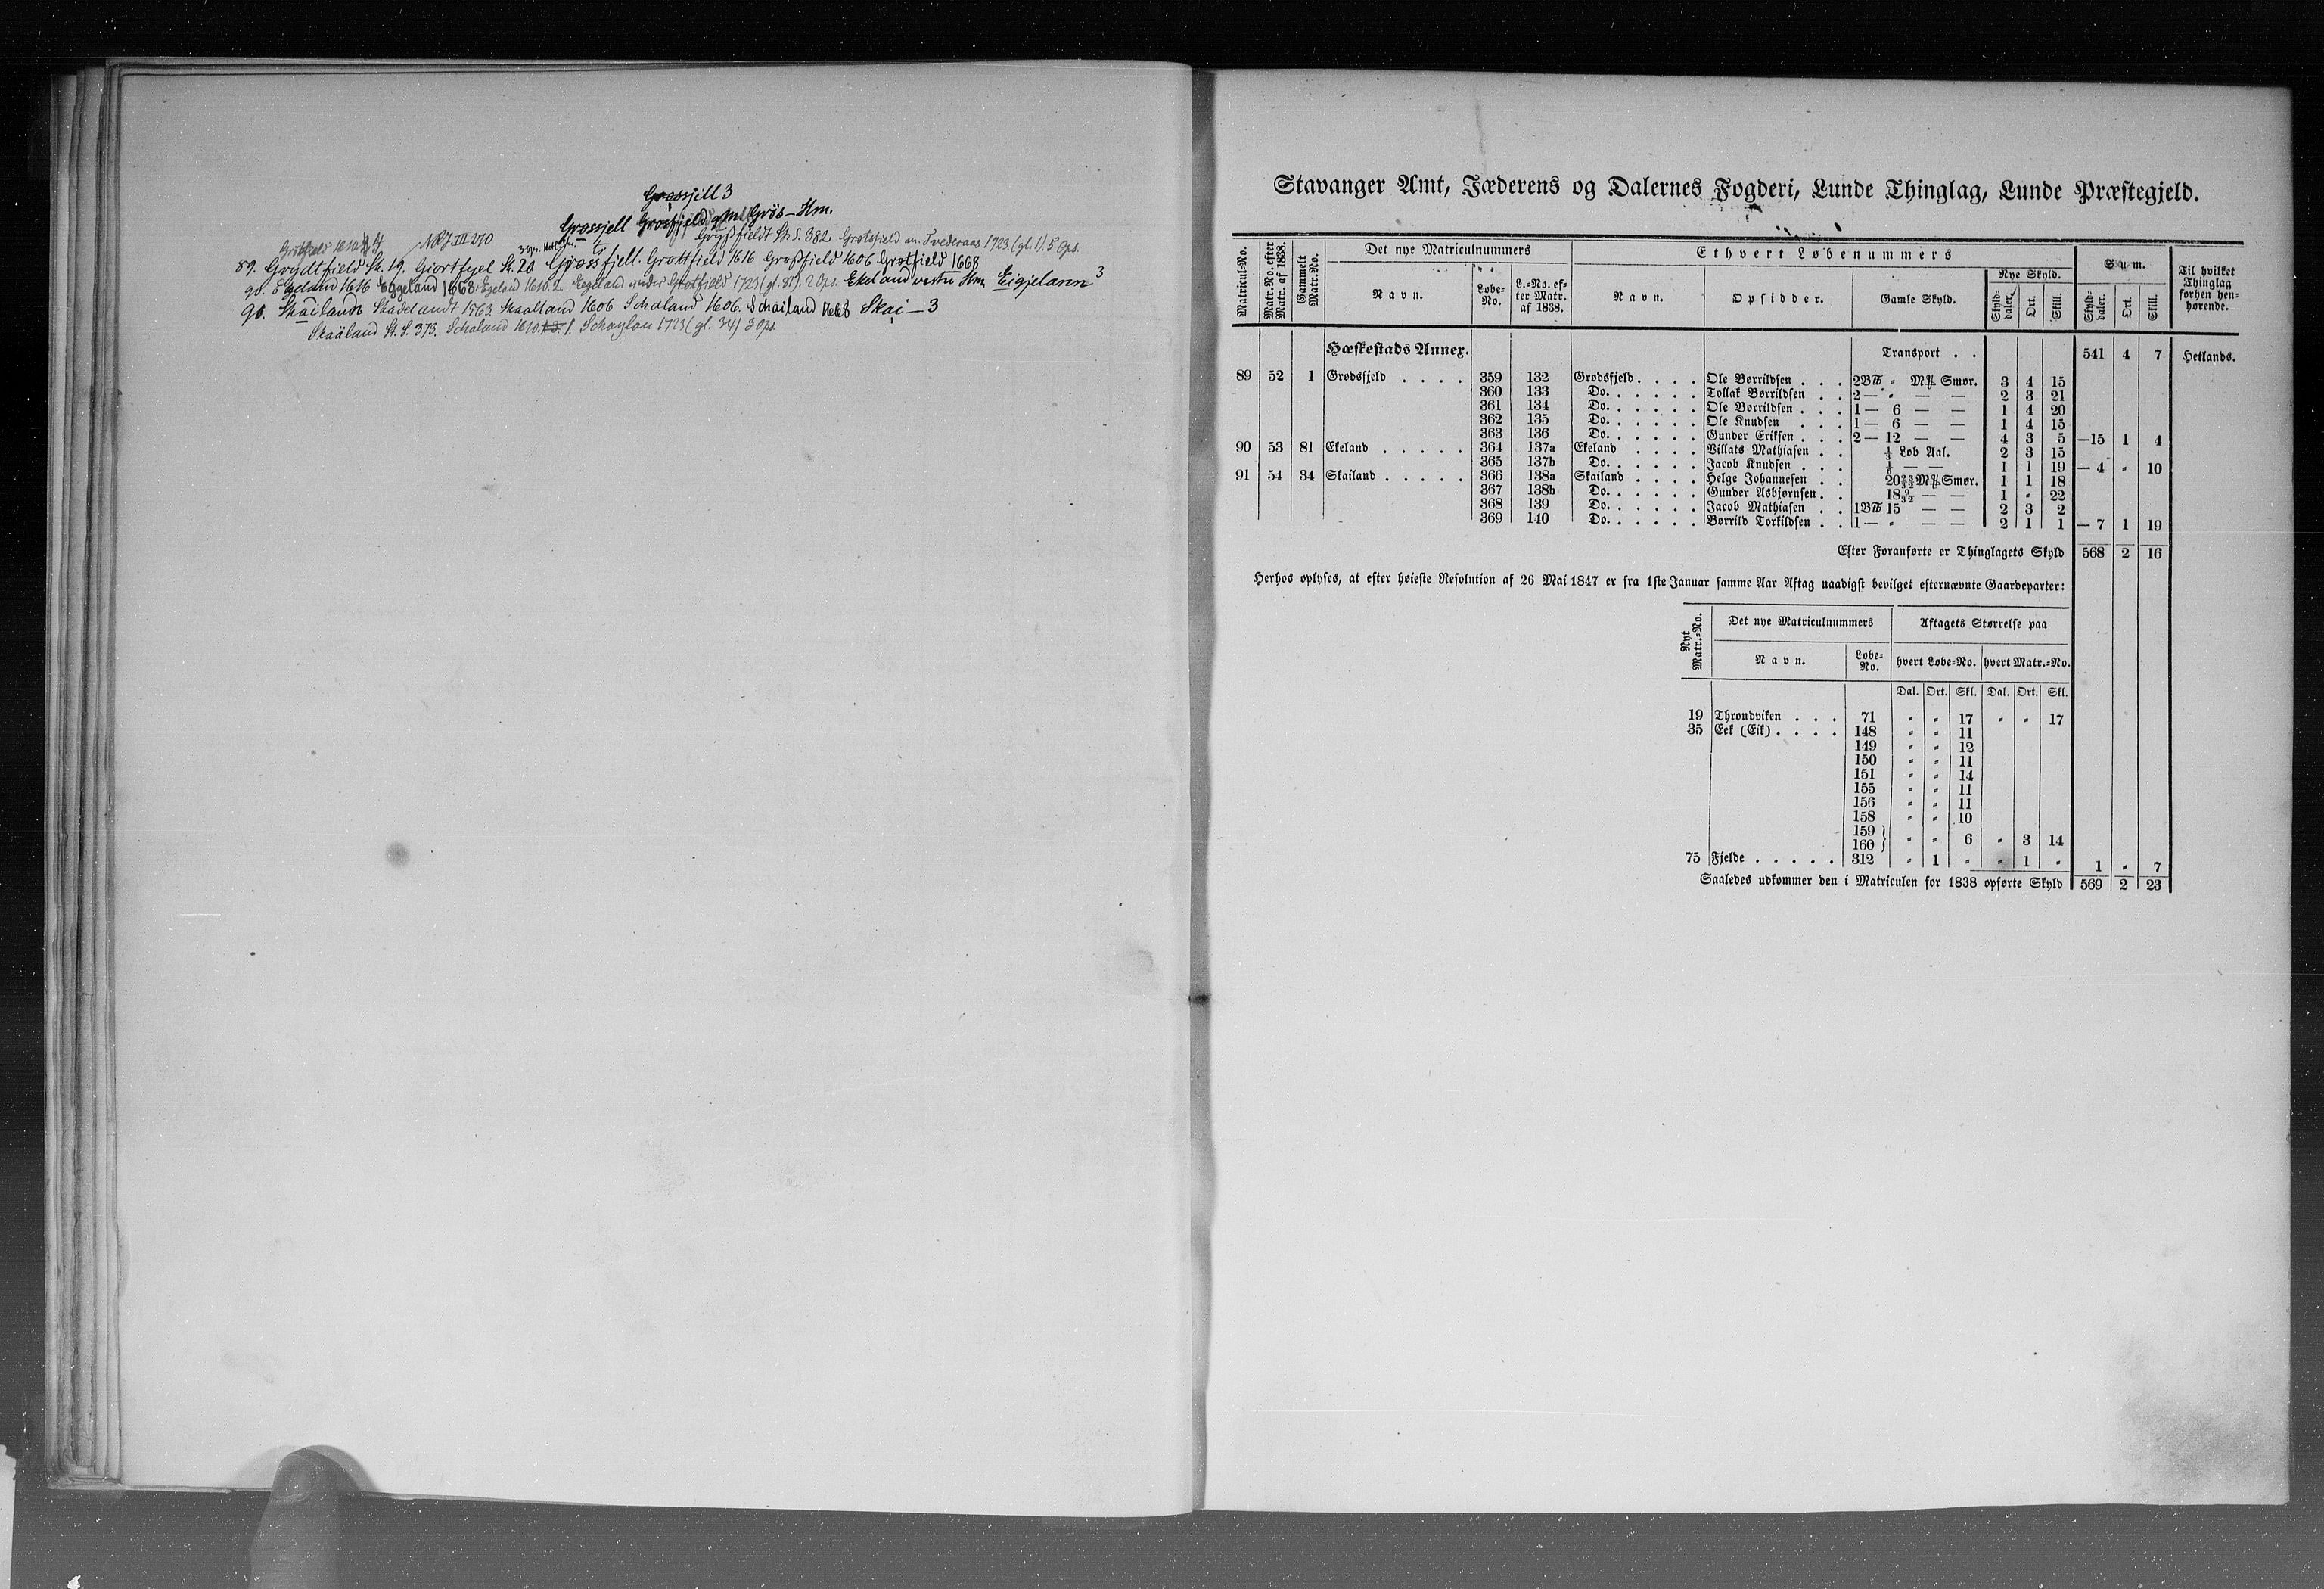 Grøssjell 3
Grøssjell Grosfjeld gml. Grös – Hm.
Gryssfieldt St. S. 382. Grotsfield m. Tvederaas 1723 (gl. 1) 5 Ops.
NRJ III 270
89. Grydtfield Sk. 19. Giortfyel St. 20 Grøssfjell. Grøttfield 1616 Grossfield 1606 Grotfield 1668
90. Egeland 1616 Eggeland 1668. Egeland 1610. 2. Egeland under Grotfield 1723 (gl. 81). 2 Ops. Ekeland vestre Hm. Eigjelann 3
91. Skäiland Skadelandt 1563. Skaalland 1606 Schaland 1606. Schailand 1668 Skai – 3
Skaäland St. S. 373. Schaland 1610. 1. Schaylan 1723 (gl. 34) 3 Ops.
Stavanger Amt, Jæderens og Dalernes Fogderi, Lunde Thinglag, Lunde Præstegjeld.
Matricul-No. Matr.-No. efter Matr. af 1838. Gammelt Matr.-No. Det nye Matriculnummers Ethvert Løbenummers Sum. Til hvilket Thinglag forhen henhørende.
Navn. Løbe-No. L.-No. efter Matr. af 1838. Navn. Opsidder. Gamle Skyld. Nye Skyld. Skylddaler. Ort. Skill. Skylddaler. Ort. Skill.
Hæskestads Annex. Transport . . 541 4 7 Hetlands.
89 52 1 Grødsfjeld . . . . 359 132 Grødsfjeld . . . . Ole Børrildsen . . . 2 B℔ " M℔ Smør. 3 4 15
360 133 Do. . . . . . Tollak Børrildsen . . 2 — " — — 2 3 21
361 134 Do. . . . . . Ole Børrildsen . . . 1 — 6 — — 1 4 20
362 135 Do. . . . . . Ole Knudsen . . . 1 — 6 — — 1 4 15
363 136 Do. . . . . . Gunder Eriksen . . . 2 — 12 — — 4 3 5 —15 1 4
90 53 81 Ekeland . . . . . 364 137a Ekeland . . . . Villats Mathiasen . . ⅓ Løb Aal. 2 3 15
365 137b Do. . . . . . Jacob Knudsen . . . — — 1 1 19 — 4 " 10
91 54 34 Skailand . . . . . 366 138a Skailand . . . . Helge Johannesen . . 20 23/32 M℔ Smør. 1 1 18
367 138b Do. . . . . . Gunder Asbjørnsen . . 18 9/32 — — 1 " 22
368 139 Do. . . . . . Jacob Mathiasen . . 1 B℔ 15 — — 2 3 2
369 140 Do. . . . . . Børrild Torkildsen . . 1 — " — — 2 1 1 — 7 1 19
Efter Foranførte er Thinglagets Skyld 568 2 16
Herhos oplyses, at efter høieste Resolution af 26 Mai 1847 er fra 1ste Januar samme Aar Aftag naadigst bevilget efternævnte Gaardeparter:
Nyt Matr.-No. Det nye Matriculnummers Aftagets Størrelse paa
Navn. Løbe-No. hvert Løbe-No. hvert Matr.-No.
Dal. Ort. Skl. Dal. Ort. Skl.
19 Throndviken . . . 71 " " 17 " " 17
35 Eek (Eik) . . . . 148 " " 11
149 " " 12
150 " " 11
151 " " 14
155 " " 11
156 " " 11
158 " " 10
159
160 } " " 6 " 3 14
75 Fjelde . . . . . 312 " 1 " " 1 " 1 " 7
Saaledes udkommer den i Matriculen for 1838 opførte Skyld 569 2 23